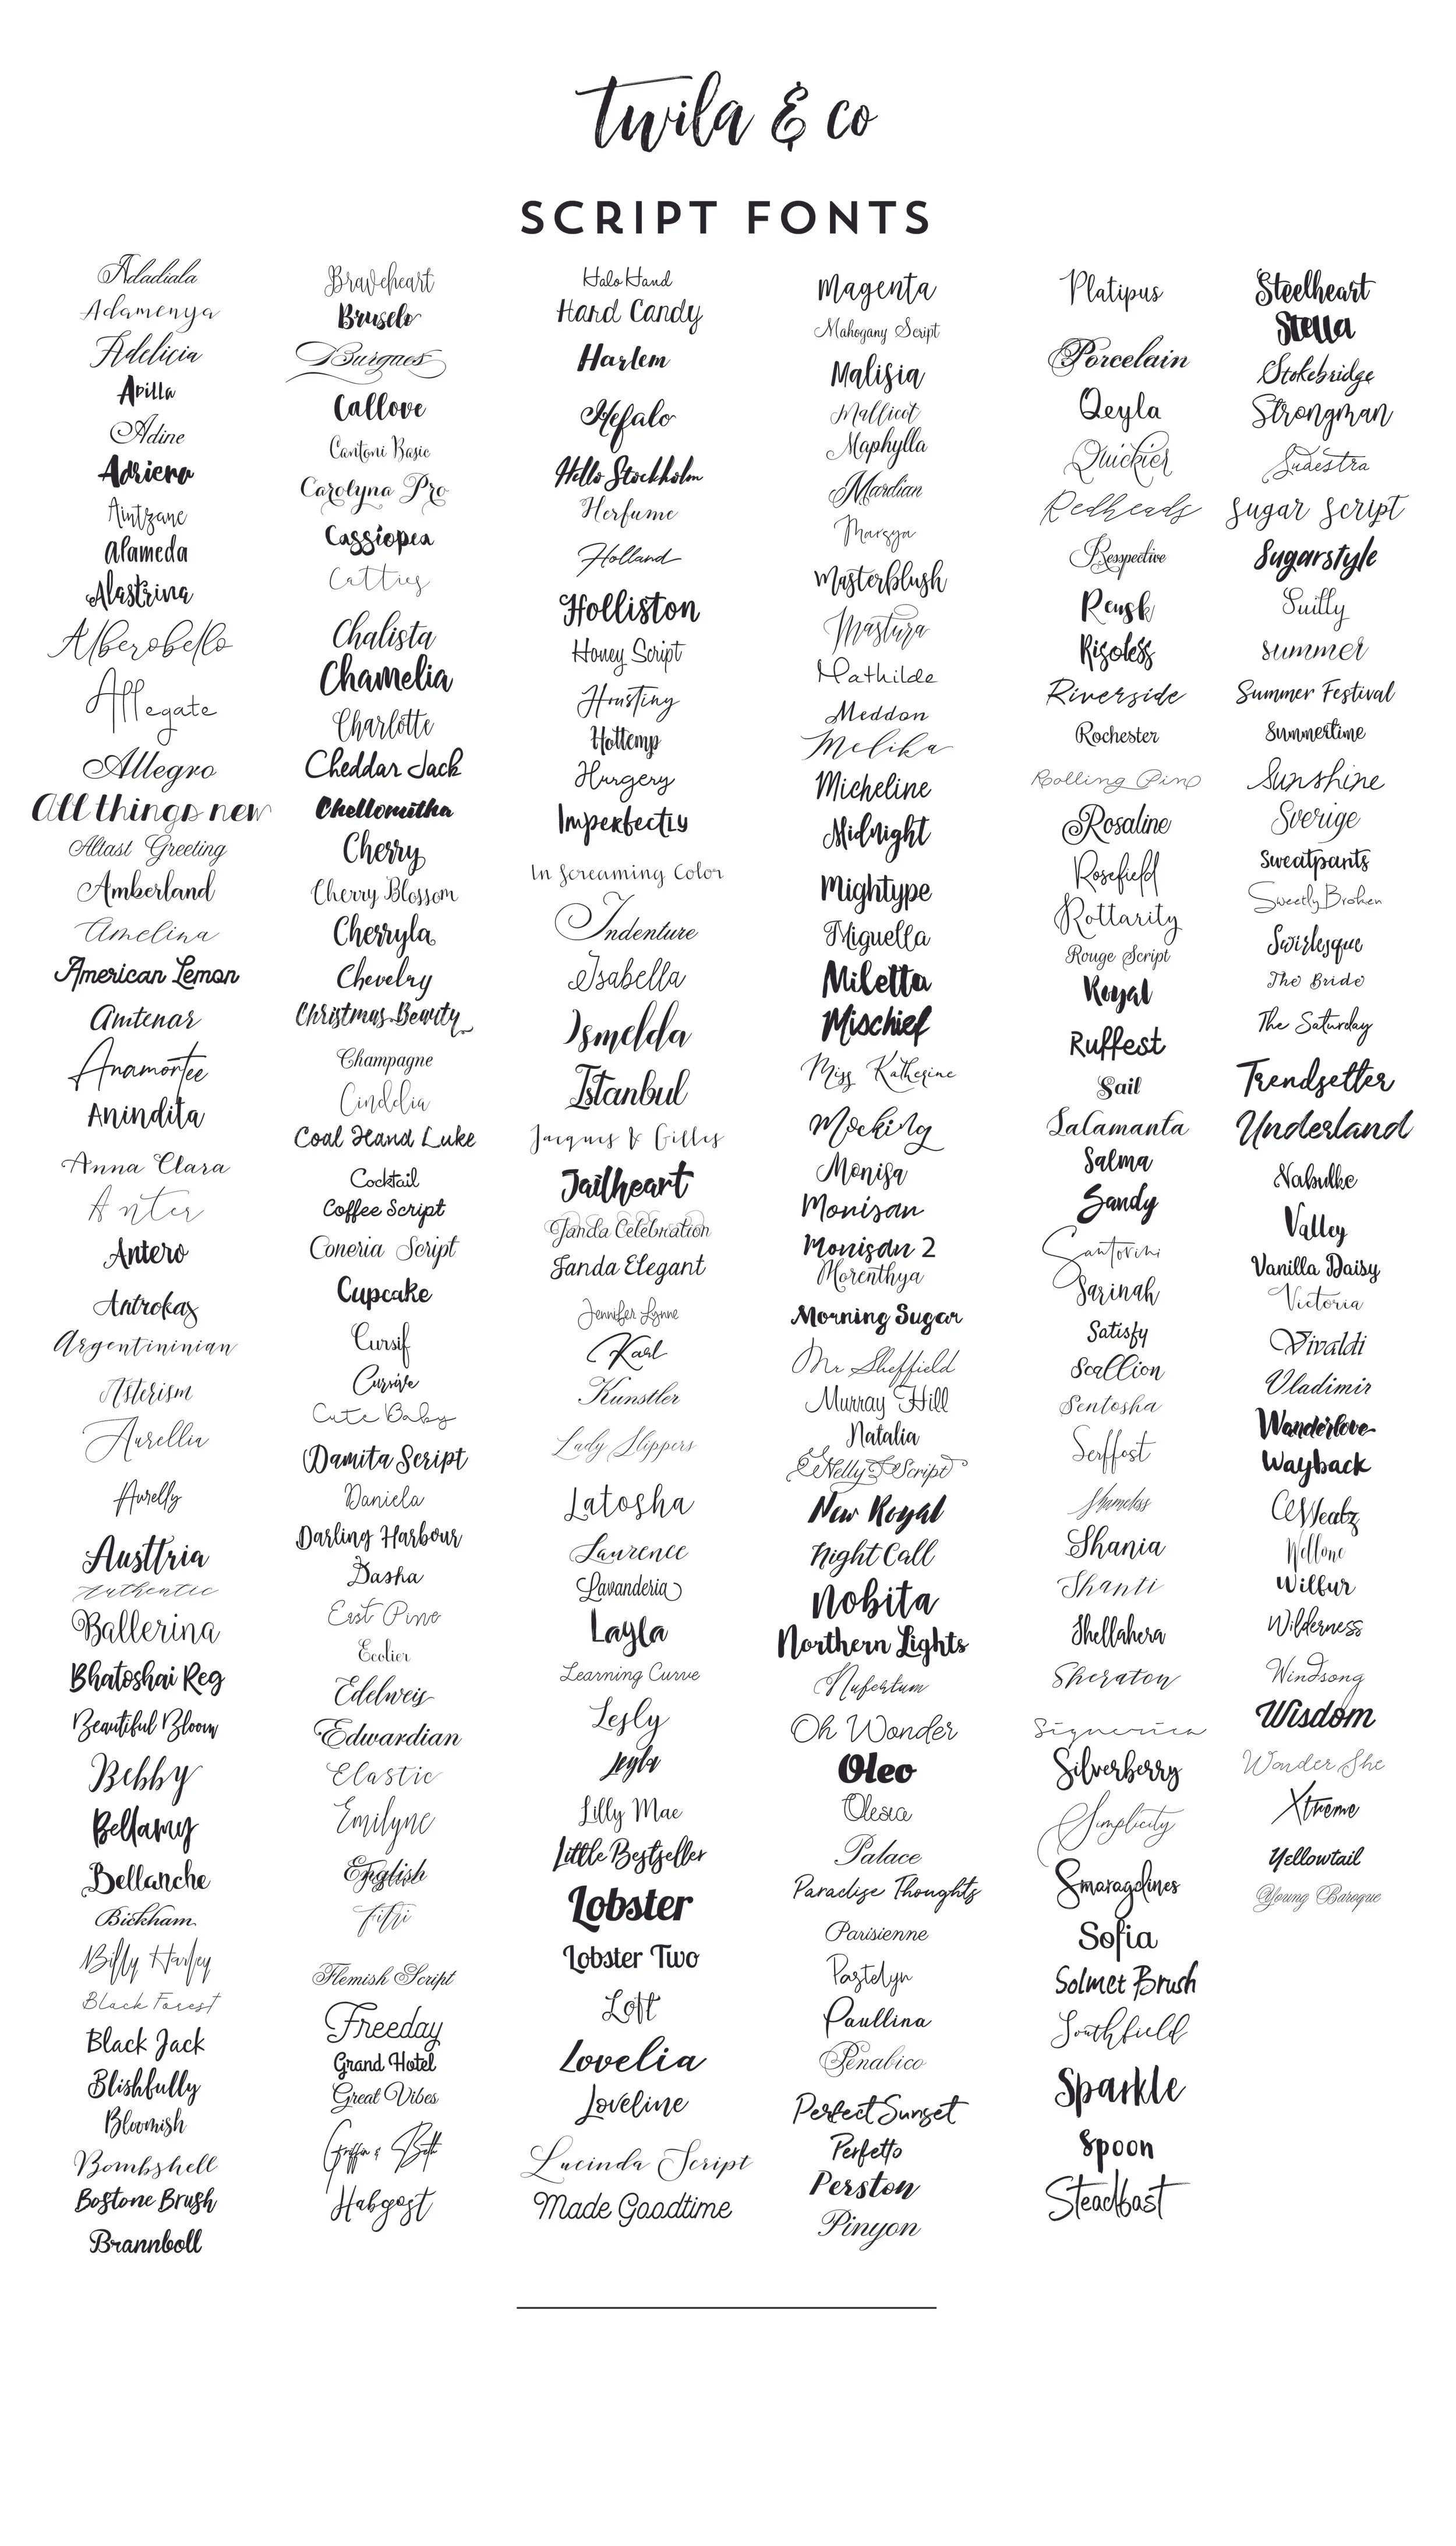 twila & co
SCRIPT FONTS
Adadiala
Adamenya
Adelicia
Adilla
Adine
Adriena
Aintzane
Alameda
Alastrina
Alberobello
Allegate
Allegro
All things new
Altast Greeting
Amberland
Amelina
American Lemon
Amtenar
Anamortee
Anindita
Anna Clara
Anter
Antero
Antrokas
Argentininian
Asterism
Aurellia
Aurelly
Austtria
Authentic
Ballerina
Bhatoshai Reg
Beautiful Bloom
Bebby
Bellamy
Bellanche
Bickham
Billy Harley
Black Forest
Black Jack
Blishfully
Bloomish
Bombshell
Bostone Brush
Brannboll
Braveheart
Bruselo
Burgues
Callove
Cantoni Basic
Carolyna Pro
Cassiopea
Catties
Chalista
Chamelia
Charlotte
Cheddar Jack
Chellomitha
Cherry
Cherry Blossom
Cherryla
Chevelry
Christmas Beauty
Champagne
Cindelia
Coal Hand Luke
Cocktail
Coffee Script
Coneria Script
Cupcake
Cursif
Cursive
Cute Baby
Damita Script
Daniela
Darling Harbour
Dasha
East Pine
Ecolier
Edelweis
Edwardian
Elastic
Emilyne
English
Fitri
Flemish Script
Freeday
Grand Hotel
Great Vibes
Griffin & Beth
Habgost
Halo Hand
Hard Candy
Harlem
Hefalo
Hello Stockholm
Herfume
Holland
Holliston
Honey Script
Housting
Hottemp
Hurgery
Imperfectly
In Screaming Color
Indenture
Isabella
Ismelda
Istanbul
Jacques & Gilles
Jailheart
Janda Celebration
Janda Elegant
Jennifer Lynne
Karl
Kunstler
Lady Slippers
Latosha
Laurence
Lavanderia
Layla
Learning Curve
Lesly
Leyla
Lilly Mae
Little Bestseller
Lobster
Lobster Two
Loft
Lovelia
Loveline
Lucinda Script
Made Goodtime
Magenta
Mahogany Script
Malisia
Mallicot
Maphylla
Mardian
Marsya
Masterblush
Mastura
Mathilde
Meddon
Melika
Micheline
Midnight
Mightype
Miguella
Miletta
Mischief
Miss Katherine
Mocking
Monisa
Monisan
Monisan 2
Morenthya
Morning Sugar
Mr Sheffield
Murray Hill
Natalia
Nelly Script
New Royal
Night Call
Nobita
Northern Lights
Nufertum
Oh Wonder
Oleo
Olesia
Palace
Paradise Thoughts
Parisienne
Pastelyn
Paullina
Penabico
Perfect Sunset
Perfetto
Perston
Pinyon
Platipus
Porcelain
Qeyla
Quickier
Redheads
Resspective
Reusk
Rigoless
Riverside
Rochester
Rolling Pin
Rosaline
Rosefield
Rottarity
Rouge Script
Royal
Ruffest
Sail
Salamanta
Salma
Sandy
Santorini
Sarinah
Satisfy
Scallion
Sentosha
Serffost
Shameless
Shania
Shanti
Shellahera
Sheraton
Signerica
Silverberry
Simplicity
Smaragdines
Sofia
Solmet Brush
Southfield
Sparkle
Spoon
Steadfast
Steelheart
Stella
Stokebridge
Strongman
Sudestra
Sugar Script
Sugarstyle
Suilly
summer
Summer Festival
Summertime
Sunshine
Sverige
Sweatpants
Sweetly Broken
Swirlesque
The Bride
The Saturday
Trendsetter
Underland
Nabulke
Valley
Vanilla Daisy
Victoria
Vivaldi
Vladimir
Wanderlove
Wayback
Weatz
Wellone
Wilbur
Wilderness
Windsong
Wisdom
Wonder She
Xtreme
Yellowtail
Young Baroque